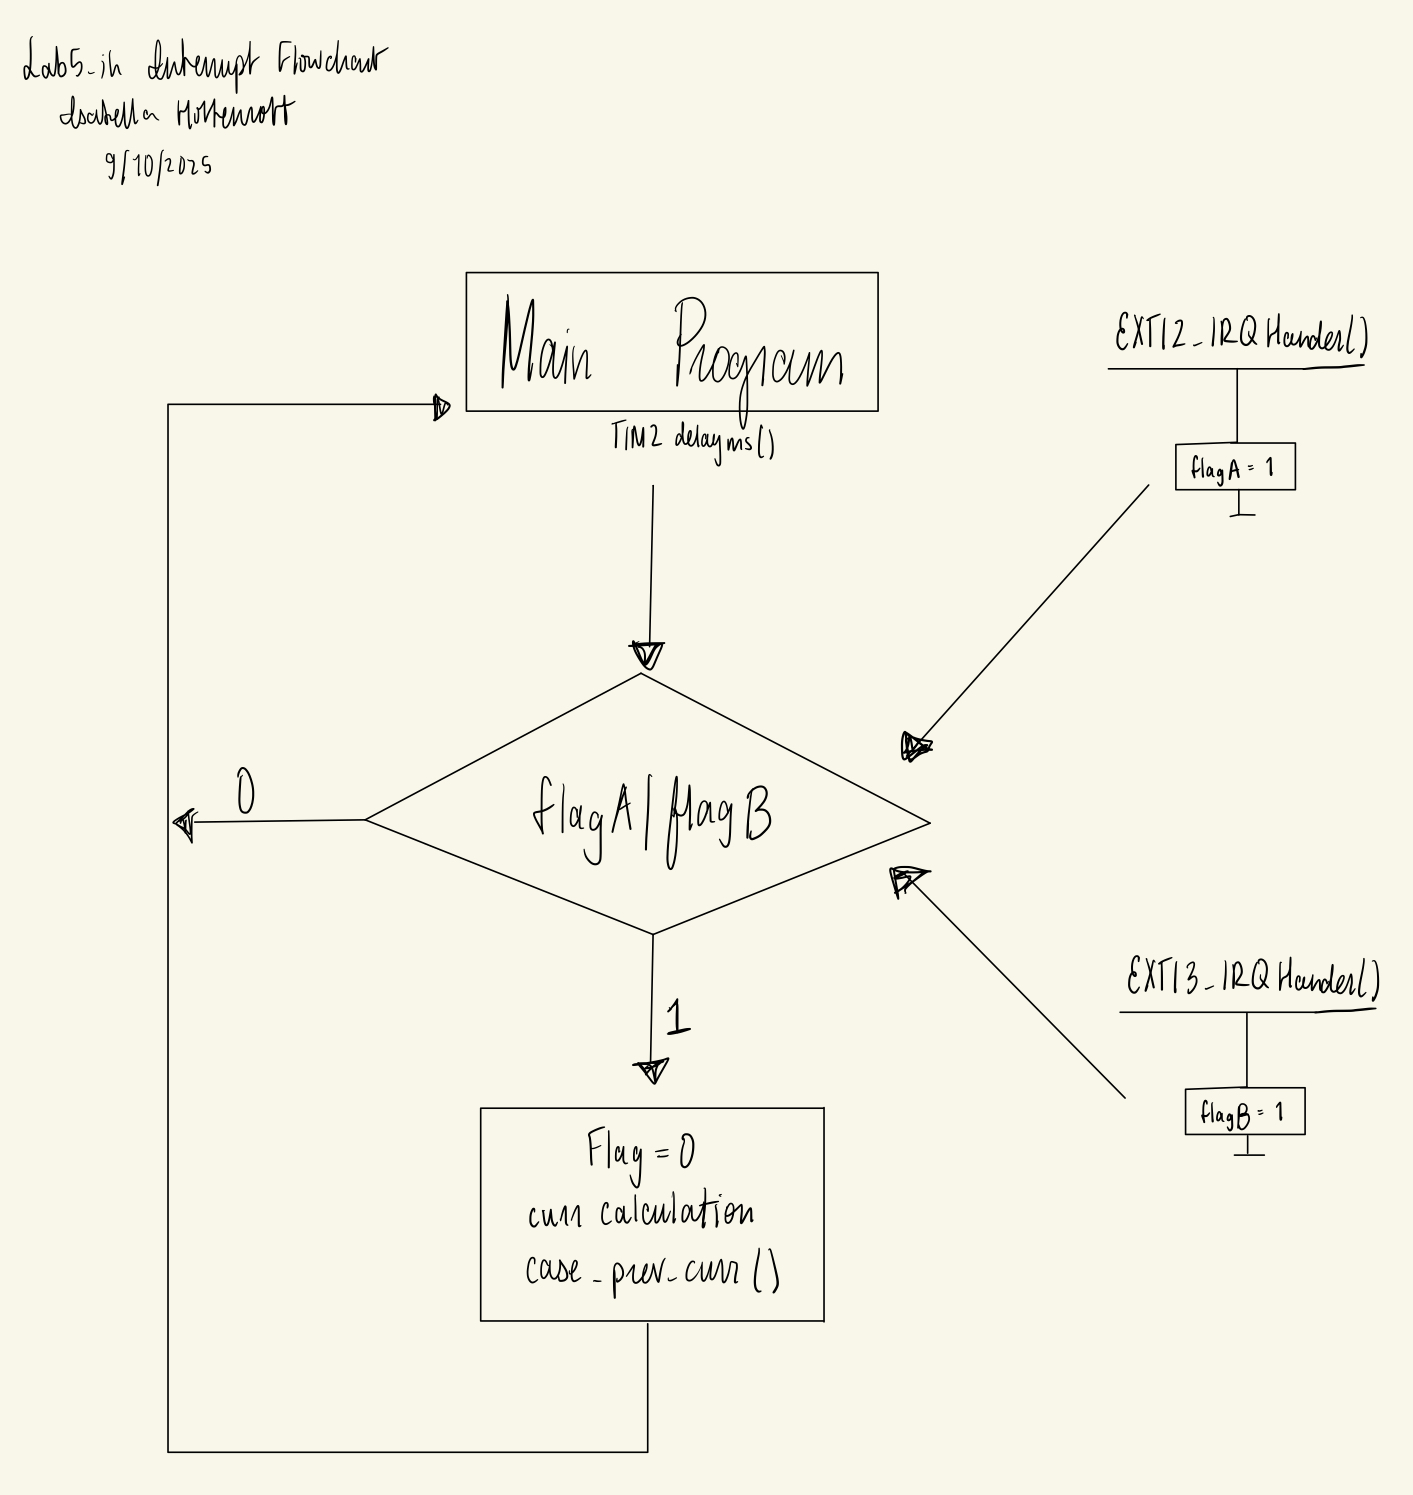 Lab5_ih Interrupt Flowchart
Isabella Hottenrott
9/10/2025
Main Program
TIM2 delayms()
EXTI2_IRQHander()
flagA = 1
0
flagA|flagB
1
EXTI3_IRQHander()
flagB = 1
Flag = 0
curr calculation
case_prev_curr()